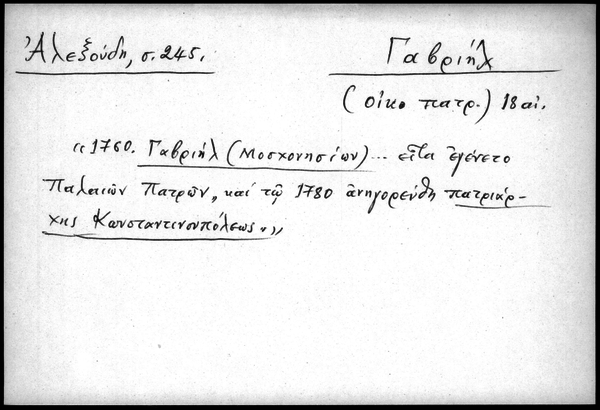 Ἀλεξούδη, σ. 245.
Γαβριήλ
(οἰκο πατρ.) 18 αἰ.
«1760. Γαβριήλ (Μοσχονησίων)... εἶτα ἐγένετο
Παλαιῶν Πατρῶν, καί τῷ 1780 ἀνηγορεύθη πατριάρ-
χης Κωνσταντινουπόλεως.»,